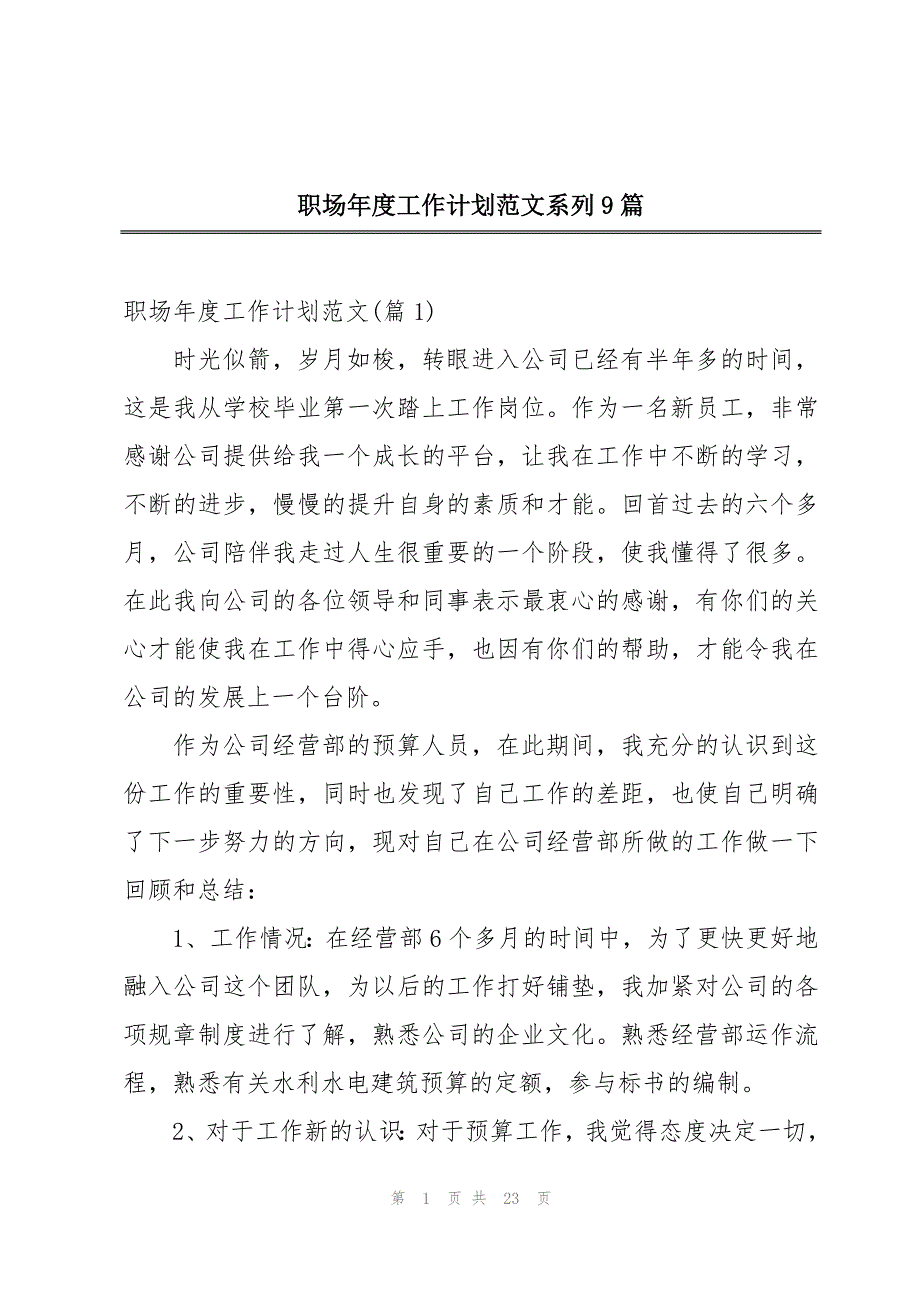 职场年度工作计划范文系列 9 篇
职场年度工作计划范文(篇 1)
时光似箭，岁月如梭，转眼进入公司已经有半年多的时间，
这是我从学校毕业第一次踏上工作岗位。作为一名新员工，非常
感谢公司提供给我一个成长的平台，让我在工作中不断的学习，
不断的进步，慢慢的提升自身的素质和才能。回首过去的六个多
月，公司陪伴我走过人生很重要的一个阶段，使我懂得了很多。
在此我向公司的各位领导和同事表示最衷心的感谢，有你们的关
心才能使我在工作中得心应手，也因有你们的帮助，才能令我在
公司的发展上一个台阶。
作为公司经营部的预算人员，在此期间，我充分的认识到这
份工作的重要性，同时也发现了自己工作的差距，也使自己明确
了下一步努力的方向，现对自己在公司经营部所做的工作做一下
回顾和总结：
1、工作情况：在经营部 6 个多月的时间中，为了更快更好地
融入公司这个团队，为以后的工作打好铺垫，我加紧对公司的各
项规章制度进行了解，熟悉公司的企业文化。熟悉经营部运作流
程，熟悉有关水利水电建筑预算的定额，参与标书的编制。
2、对于工作新的认识：对于预算工作，我觉得态度决定一切，
第 1 页 共 23 页